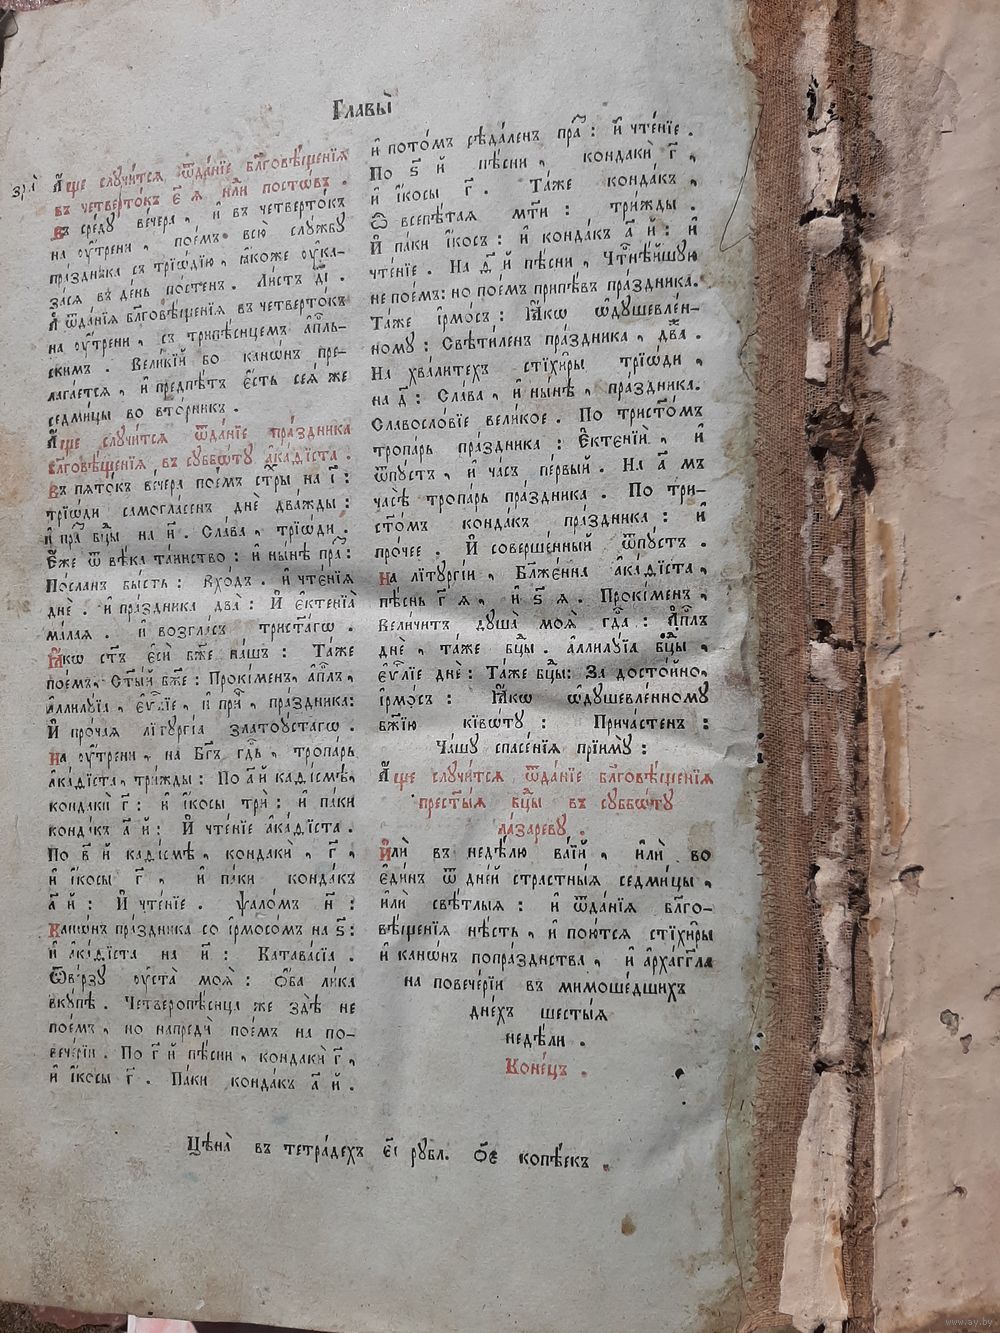 Главы̀
А҆́ще слꙋчи́тсѧ ѿда́нїе бл҃говѣ́щенїѧ
въ четверто́къ є҃ ѧ, и҆лѝ посто́въ.
Въ сре́дꙋ ве́чера, и҆ въ четверто́къ
на ᲂу҆́трени, пое́мъ всю̀ слꙋ́жбꙋ
пра́здника съ трїѡ́дїю, ꙗ҆́коже ᲂу҆ка-
за́сѧ въ де́нь по́стенъ. Ли́стъ
А҆ ѿда́нїѧ бл҃говѣ́щенїѧ въ четверто́къ
на ᲂу҆́трени, съ трипѣ́снцемъ а҆пⷭ҇ль-
скимъ. Вели́кїй бо канѡ́нъ пре-
лага́етсѧ, и҆ предпѣ́тъ є҆́сть сеѧ́ же
седми́цы во вто́рникъ.
А҆́ще слꙋчи́тсѧ ѿда́нїе пра́здника
бл҃говѣ́щенїѧ въ сꙋббѡ́тꙋ а҆ка́ѳїста.
Въ пѧто́къ ве́чера пое́мъ стⷯры на і҃:
трїѡ́ди самогла́сенъ днѐ два́жды:
и҆ пра́ бцⷣы на и҃. Сла́ва, трїѡ́ди.
Е҆́же ѿ вѣ́ка та́инство: и҆ ны́нѣ пра́:
По́сланъ бы́сть: Вхо́дъ. и҆ чте́нїѧ
днѐ. и҆ пра́здника два̀: И҆ є҆ктенїа̀
ма́лаѧ. и҆ возгла́съ трист҃а́гѡ.
Ꙗ҆́кѡ ст҃ъ є҆сѝ бж҃е на́шъ: Та́же
пое́мъ, Ст҃ы́й бж҃е: Проки́менъ, а҆пⷭ҇лъ,
А҆ллилꙋ́їа, є҆ѵⷢ҇лїе, и҆ пра́здника:
И҆ про́чаѧ лїтꙋргі́а златоꙋ́стагѡ.
На ᲂу҆́трени, на Бг҃ъ гдⷭ҇ь, тропа́рь
а҆ка́ѳїста, три́жды: По а҃ й каѳі́смѣ,
кондакѝ г҃: и҆ і҆́косы трѝ: и҆ па́ки
конда́къ а҃ й: И҆ чте́нїе а҆ка́ѳїста.
По в҃ й каѳі́смѣ, кондакѝ, г҃,
и҆ і҆́косы г҃, и҆ па́ки конда́къ
а҃ й: И҆ чте́нїе. Ѱало́мъ н҃:
Канѡ́нъ пра́здника со і҆рмосо́мъ на ѕ҃:
и҆ а҆ка́ѳїста на и҃: Катава́сїа.
Ѿве́рзꙋ ᲂу҆ста̀ моѧ̀: ѻ҆́ба ли́ка
вкꙋ́пѣ. Четверопѣ́снца же здѣ̀ не
пое́мъ, но напредѝ пое́мъ на по-
вече́рїи. По г҃ й пѣ́сни, кондакѝ г҃,
и҆ і҆́косы г҃. Па́ки конда́къ а҃ й.
и҆ пото́мъ сѣда́ленъ пра́: и҆ чте́нїе.
По ѕ҃ й пѣ́сни, кондакѝ г҃,
и҆ і҆́косы г҃. Та́же конда́къ,
Ѽ всепѣ́таѧ мт҃и: три́жды.
И҆ па́ки і҆́косъ: и҆ конда́къ а҃ й: и҆
чте́нїе. На ѳ҃ й пѣ́сни, Чтⷭ҇нѣ́йшꙋю
не пое́мъ: но пое́мъ припѣ́въ пра́здника.
Та́же і҆рмо́съ: Ꙗ҆́кѡ ѡ҆дꙋшевле́н-
номꙋ: Свѣти́ленъ пра́здника, два́.
На хвали́техъ стїхи̑ры трїѡ́ди,
на д҃: Сла́ва, и҆ ны́нѣ, пра́здника.
Славосло́вїе вели́кое. По трист҃о́мъ
тропа́рь пра́здника: Е҆ктенїѝ, и҆
ѿпꙋ́стъ, и҆ ча́съ пе́рвый. На а҃ мъ
часѣ̀ тропа́рь пра́здника. По три-
ст҃о́мъ конда́къ пра́здника: и҆
про́чее. И҆ соверше́нный ѿпꙋ́стъ.
На лїтꙋргі́и, Бл҃же́нна а҆ка́ѳїста,
пѣ́снь г҃ ѧ, и҆ ѕ҃ ѧ. Проки́менъ,
Вели́читъ дꙋша̀ моѧ̀ гдⷭ҇а: А҆пⷭ҇лъ
днѐ, та́же бцⷣы. а҆ллилꙋ́їа бцⷣы,
є҆ѵⷢ҇лїе днѐ: Та́же бцⷣы: За досто́йно,
і҆рмо́съ: Ꙗ҆́кѡ ѡ҆дꙋшевле́нномꙋ
бж҃їю кївѡ́тꙋ: Прича́стенъ:
Ча́шꙋ спасе́нїѧ прїимꙋ̀:
А҆́ще слꙋчи́тсѧ ѿда́нїе бл҃говѣ́щенїѧ
прест҃ы́ѧ бцⷣы въ сꙋббѡ́тꙋ
ла́зареву.
И҆лѝ въ недѣ́лю ва́їй, и҆лѝ во
є҆ди́нъ ѿ дне́й стра́стныѧ седми́цы,
и҆лѝ свѣ́тлыѧ: и҆ ѿда́нїѧ бл҃го-
вѣ́щенїѧ нѣ́сть, и҆ пою́тсѧ стїхи̑ры
и҆ канѡ́нъ попра́зднства, и҆ а҆рха́гг҃ла
на повече́рїи въ мимоше́дшихъ
дне́хъ шесты́ѧ
недѣ́ли.
Коне́цъ.
Цѣна̀ въ тетра́дехъ є҃і рꙋбл. ѻ҃є копѣ́екъ.
www.ay.by